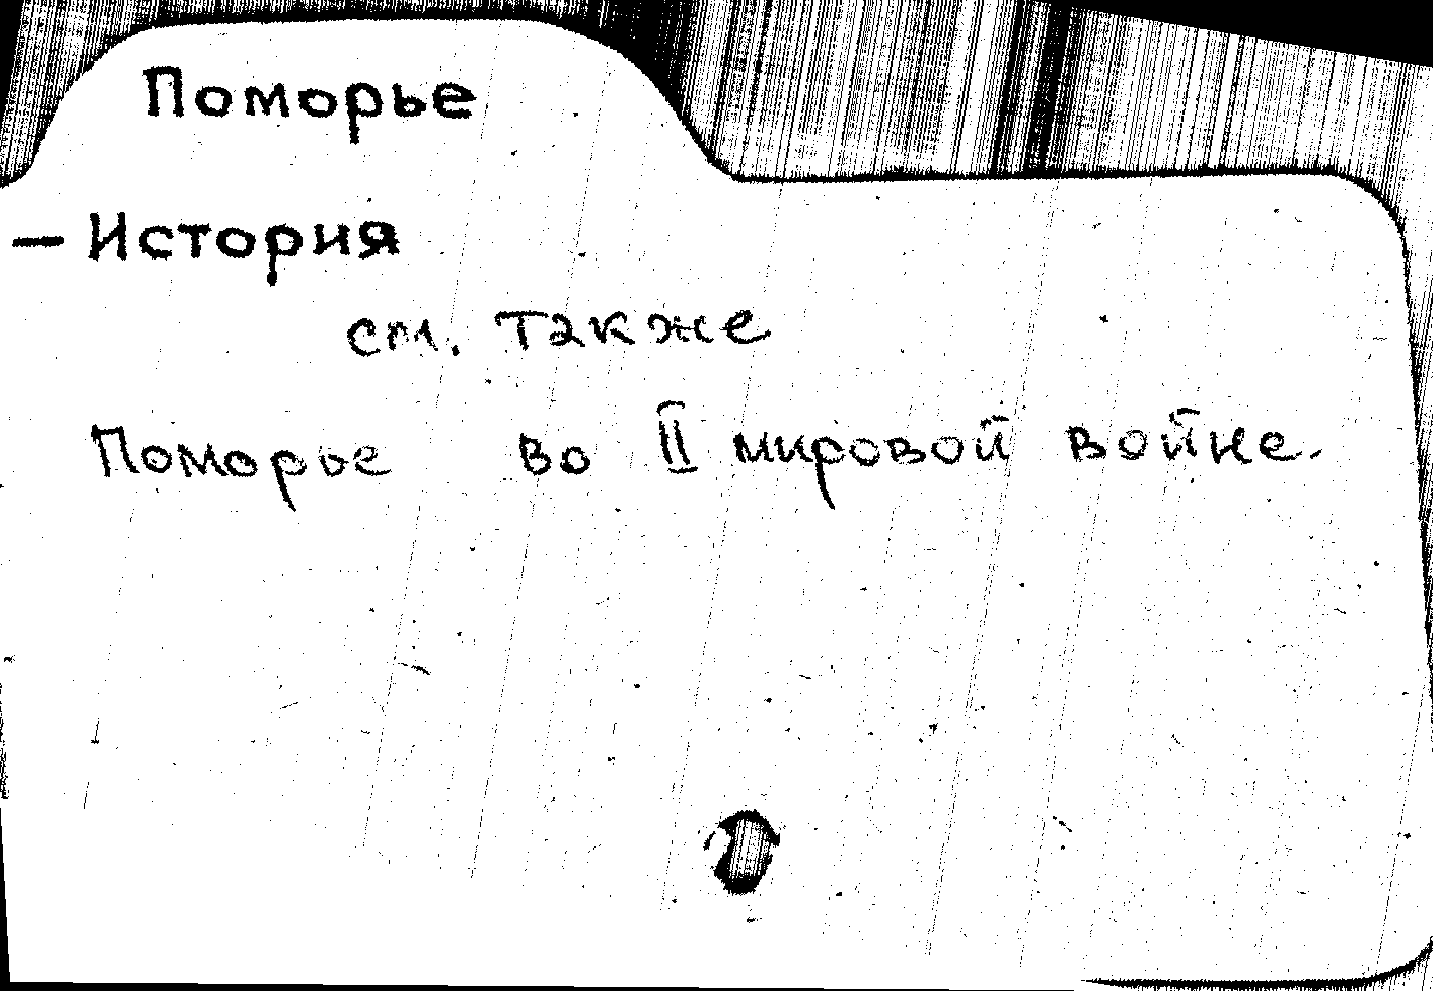 Поморье
— История
см. также
Поморье во II мировой войне.